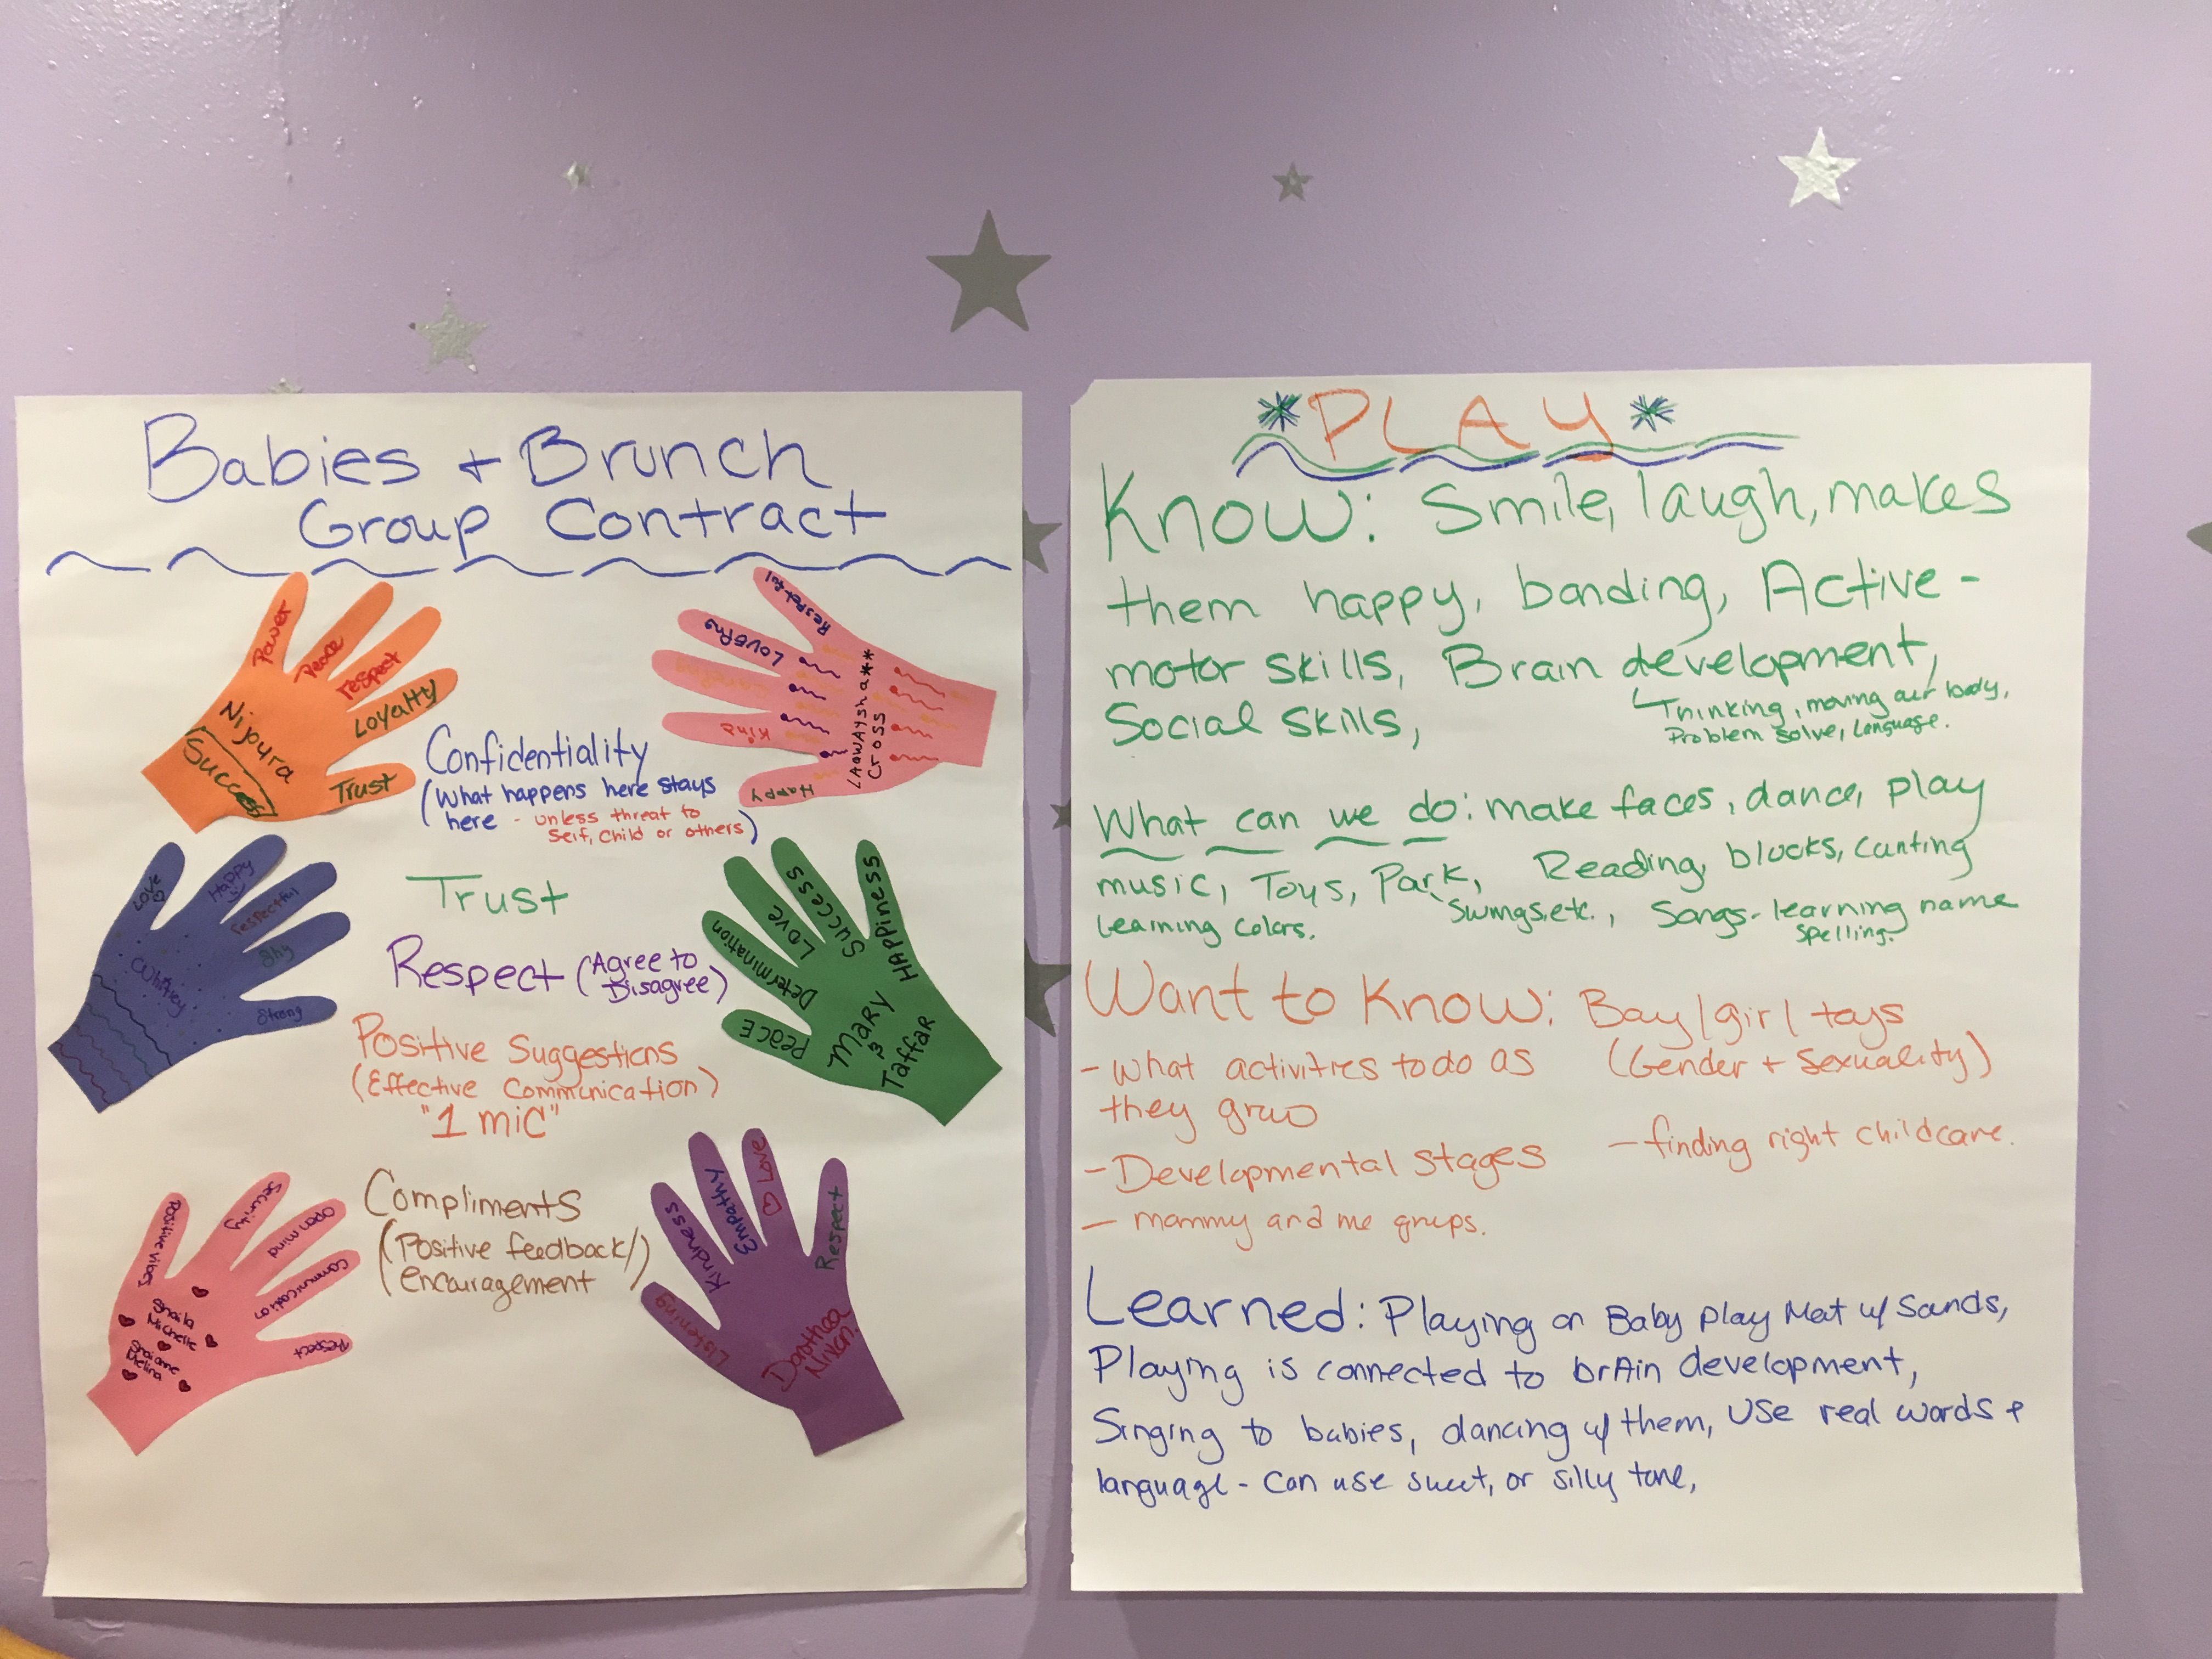 Babies + Brunch
Group Contract
Power
Peace
respect
Loyalty
Trust
Nijoyra
Success
Respectful
Loving
Kind
Happy
LAqwAysha**
Cross
Confidentiality
(What happens here stays
here - unless threat to
Self, child or others)
Love
Happy
respectful
Shy
Strong
Whitney
Trust
Respect (Agree to
Disagree)
Happiness
Success
Love
Determination
Peace
Mary
Taffar
Positive Suggestions
(Effective Communication)
"1 mic"
Positive vibes
Security
open mind
Communication
Respect
Shaila
Michelle
Compliments
(Positive feedback/)
encouragement
Listening
Kindness
Empathy
Love
Respect
Dorothea
Nixon
*PLAY*
Know: Smile, laugh, makes
them happy, bonding, Active -
motor skills, Brain development,
Thinking, moving our body,
Problem solve, Language.
Social skills,
What can we do: make faces, dance, play
music, Toys, Park, Reading, blocks, counting
Swings, etc., Songs - learning name
spelling.
Learning colors.
Want to Know: Boy/girl toys
(Gender + Sexuality)
- What activities to do as
they grow
- finding right childcare.
- Developmental stages
- mommy and me groups.
Learned: Playing on Baby play Mat w/ Sounds,
Playing is connected to brAin development,
Singing to babies, dancing w/ them, use real words +
language - can use sweet, or silly tone,